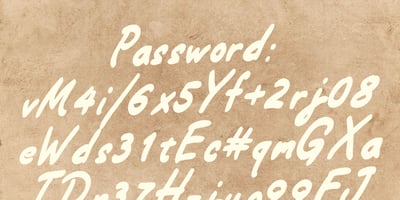 Password:
vM4i/6x5Yf+2rj08
eWds31tEc#qmGXa